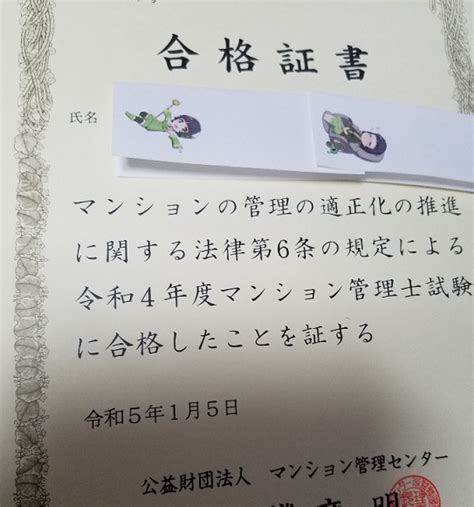 合格証書
氏名
マンションの管理の適正化の推進
に関する法律第6条の規定による
令和4年度マンション管理士試験
に合格したことを証する
令和5年1月5日
公益財団法人 マンション管理センター